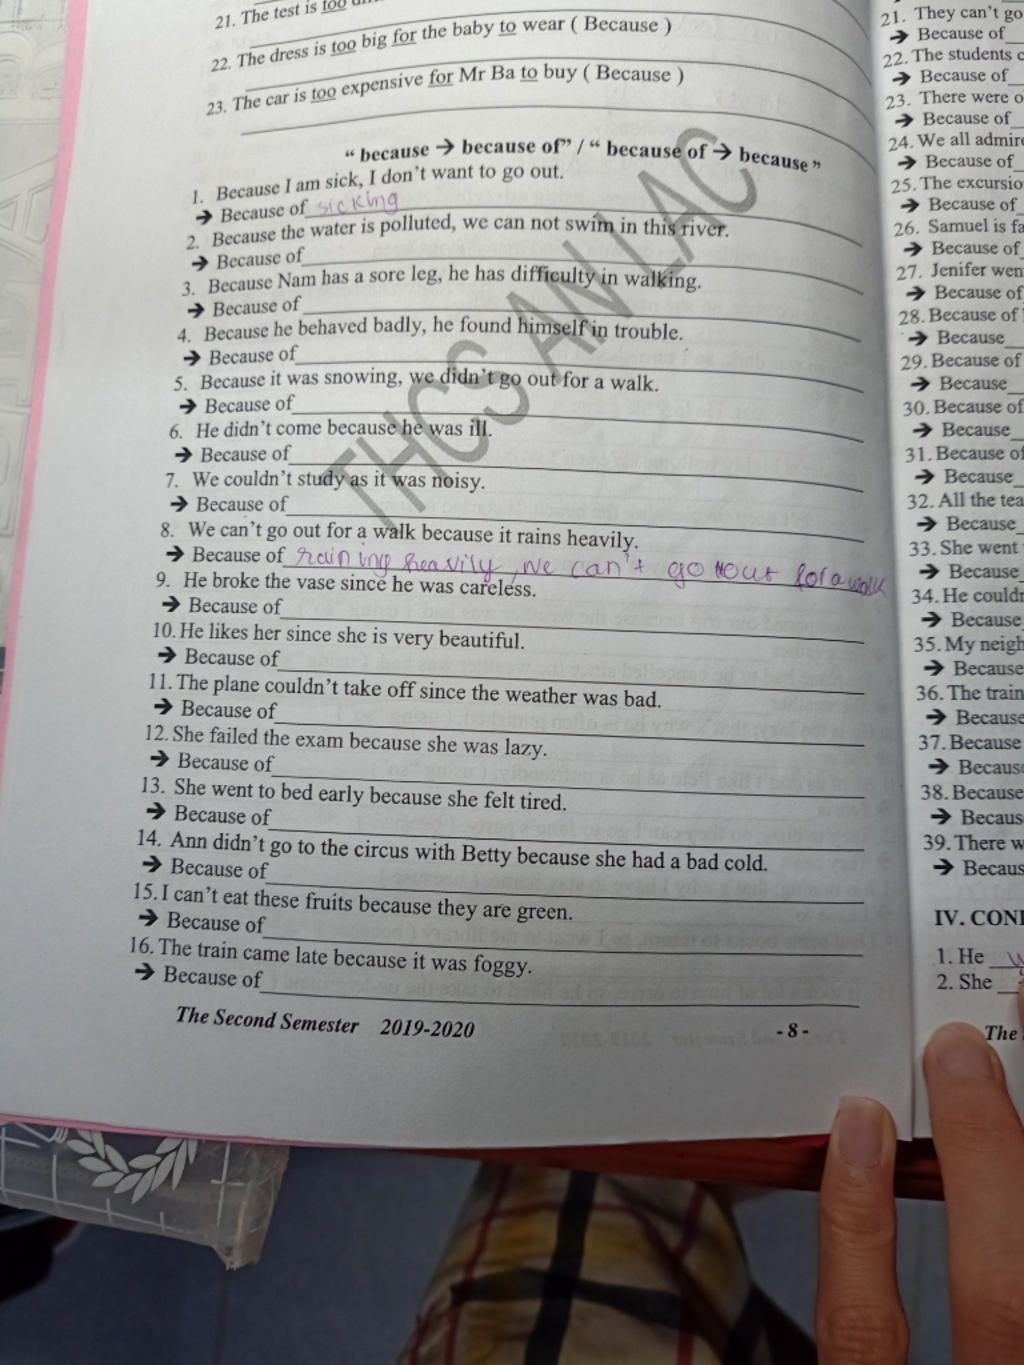 21. The test is too
22. The dress is too big for the baby to wear ( Because )
23. The car is too expensive for Mr Ba to buy ( Because )
“ because → because of” / “ because of → because ”
1. Because I am sick, I don’t want to go out.
→ Because of sicking
2. Because the water is polluted, we can not swim in this river.
→ Because of
3. Because Nam has a sore leg, he has difficulty in walking.
→ Because of
4. Because he behaved badly, he found himself in trouble.
→ Because of
5. Because it was snowing, we didn’t go out for a walk.
→ Because of
6. He didn’t come because he was ill.
→ Because of
7. We couldn’t study as it was noisy.
→ Because of
8. We can’t go out for a walk because it rains heavily.
→ Because of raining heavily, we can't go out for a walk
9. He broke the vase since he was careless.
→ Because of
10. He likes her since she is very beautiful.
→ Because of
11. The plane couldn’t take off since the weather was bad.
→ Because of
12. She failed the exam because she was lazy.
→ Because of
13. She went to bed early because she felt tired.
→ Because of
14. Ann didn’t go to the circus with Betty because she had a bad cold.
→ Because of
15. I can’t eat these fruits because they are green.
→ Because of
16. The train came late because it was foggy.
→ Because of
The Second Semester 2019-2020
- 8 -
THCS AN LAC
21. They can’t go
→ Because of
22. The students
→ Because of
23. There were
→ Because of
24. We all
→ Because of
25. The
→ Because of
26. Samuel is
→ Because of
27. Jenifer
→ Because of
28. Because of
→ Because
29. Because of
→ Because
30. Because of
→ Because
31. Because of
→ Because
32. All the
→ Because
33. She went
→ Because
34. He
→ Because
35. My
→ Because
36. The train
→ Because
37. Because
→ Because
38. Because
→
39. There
→
IV.
1. He
2. She
The